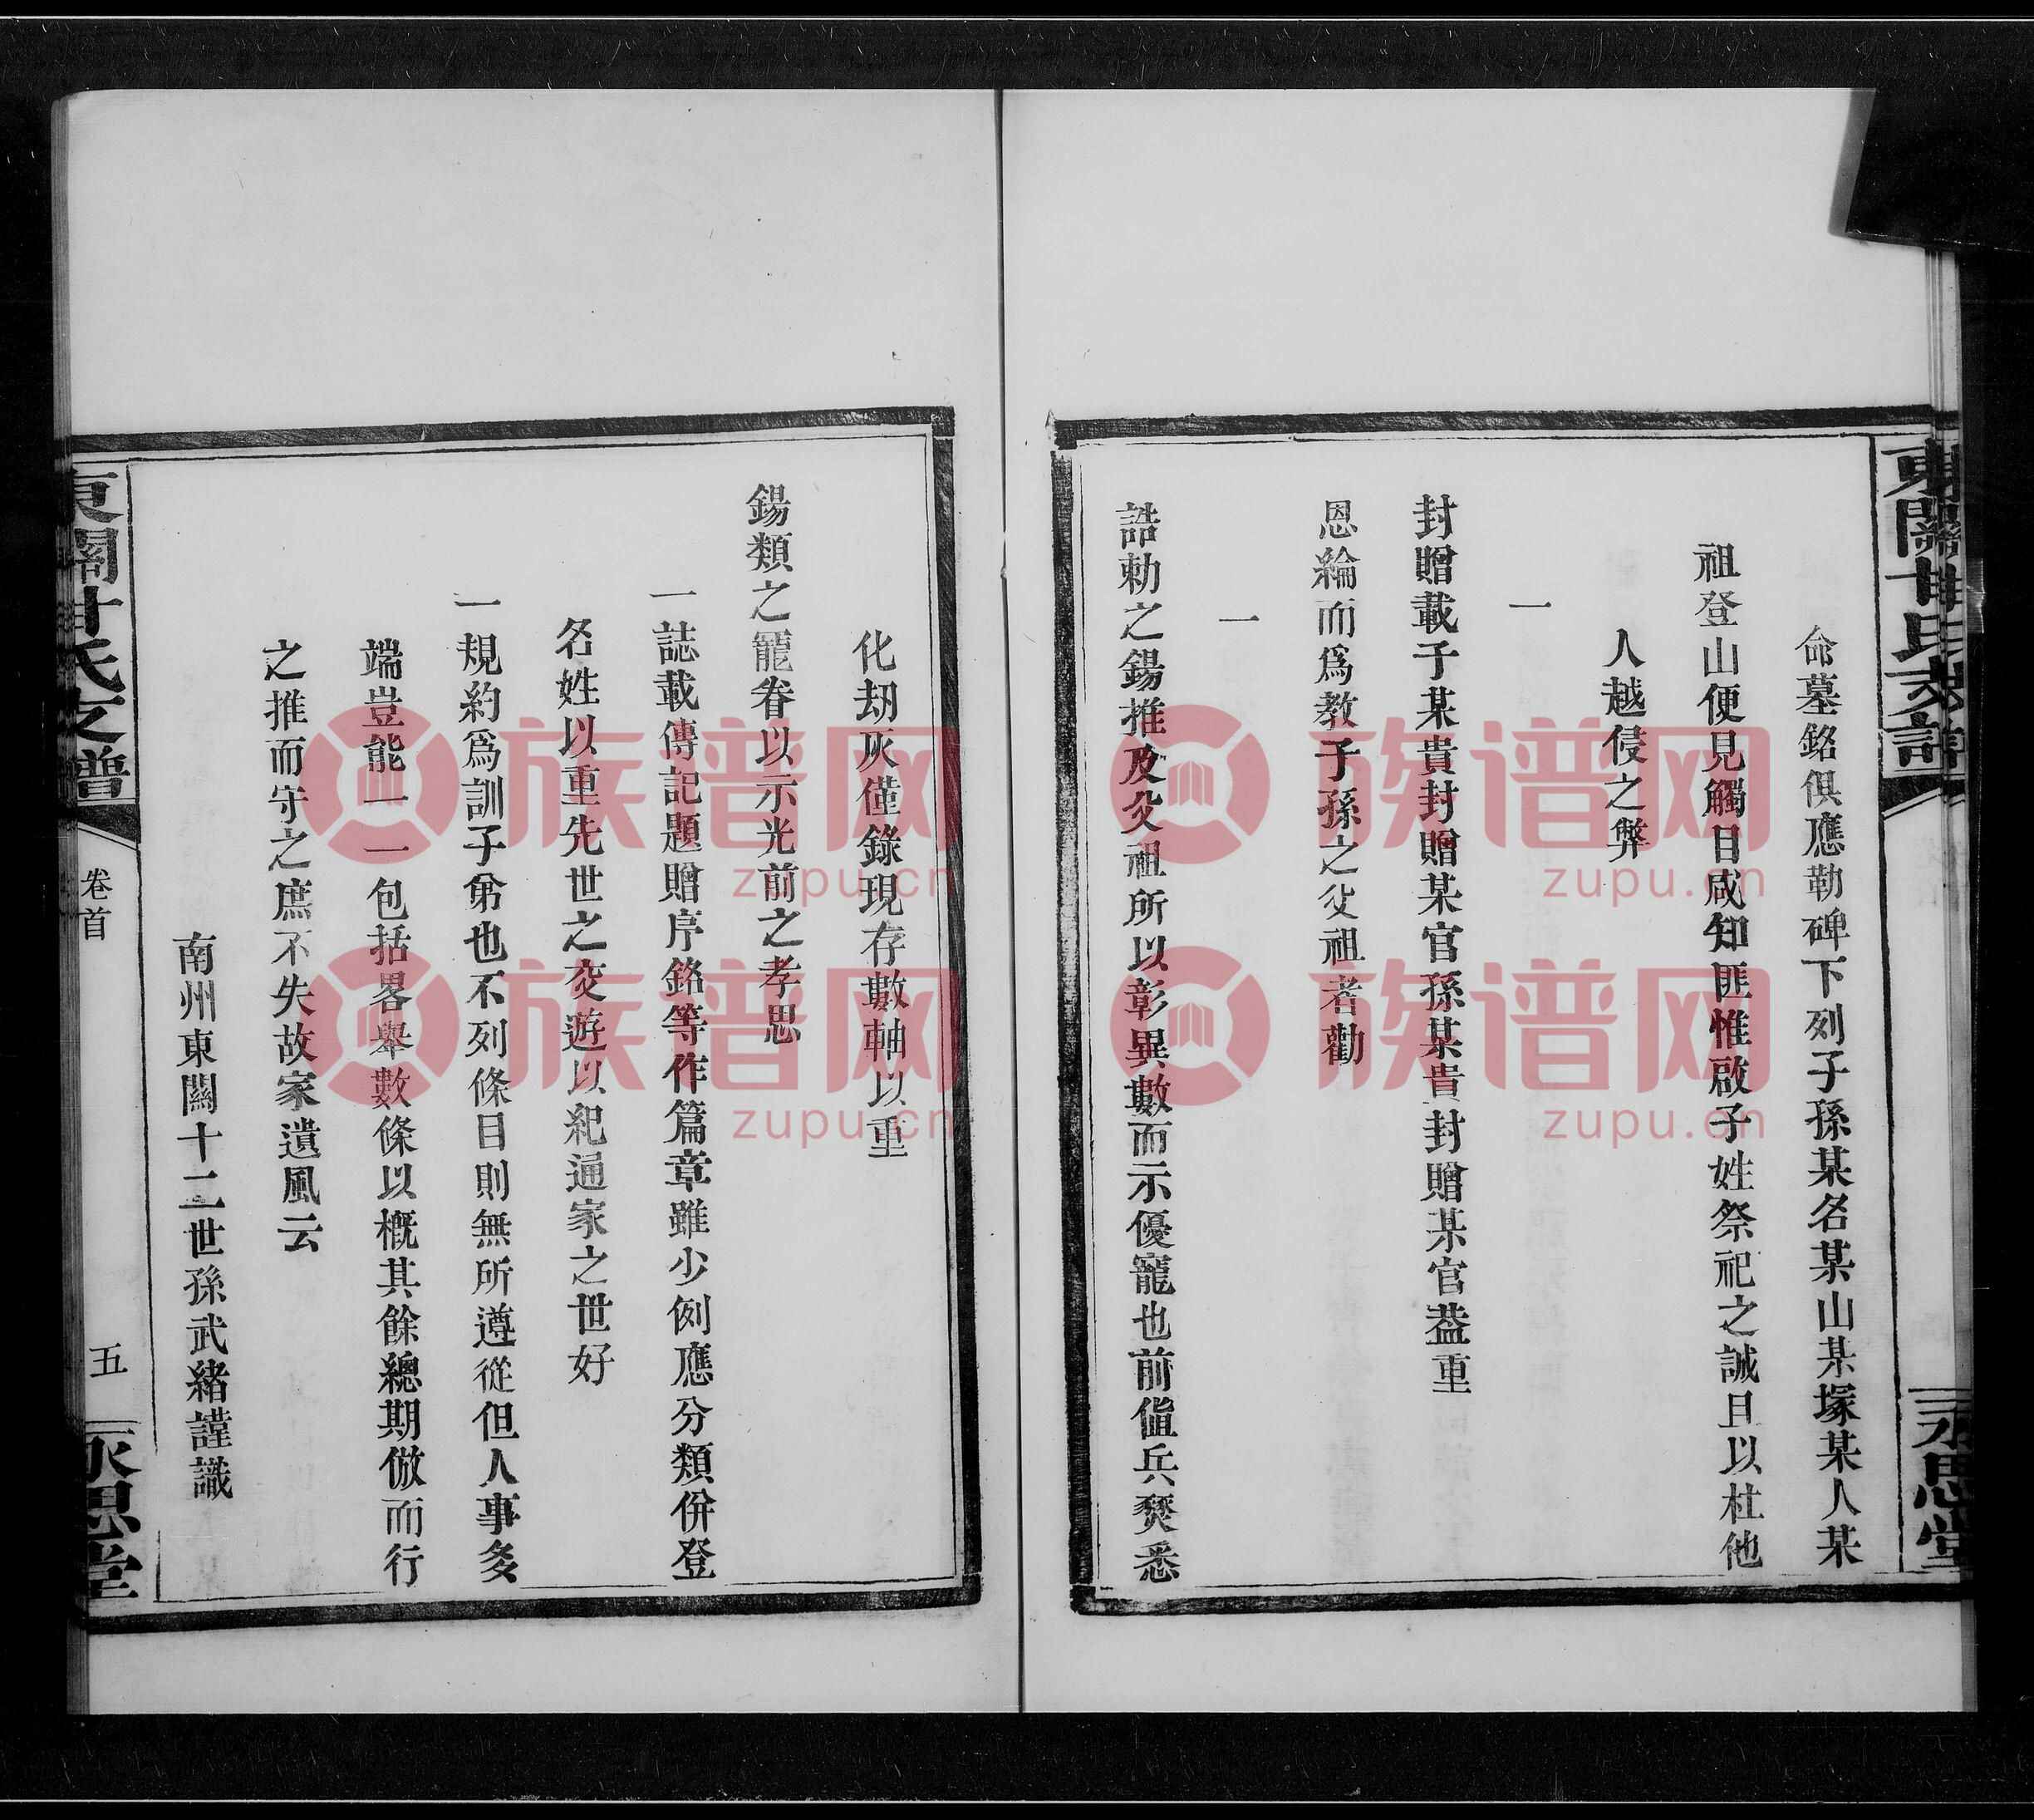 東關甘氏支譜
永思堂
命墓銘俱應勒碑下列子孫某名某山某塚某人某
祖登山便見觸目咸知匪惟啟子姓祭祀之誠且以杜他
人越侵之弊
一
封贈載子某貴封贈某官孫某貴封贈某官葢重
恩綸而爲教子孫之父祖者勸
一
誥勅之錫推及父祖所以彰異數而示優寵也前値兵燹悉
化刧灰僅錄現存數軸以重
錫類之寵眷以示光前之孝思
一誌載傳記題贈序銘等作篇章雖少例應分類倂登
名姓以重先世之交遊以紀通家之世好
一規約爲訓子弟也不列條目則無所遵從但人事多
端豈能一一包括畧舉數條以概其餘總期倣而行
之推而守之庶不失故家遺風云
南州東關十二世孫武緒謹識
東關甘氏支譜
卷首
五
永思堂
族谱网
zupu.cn
族谱网
zupu.cn
族谱网
zupu.cn
族谱网
zupu.cn